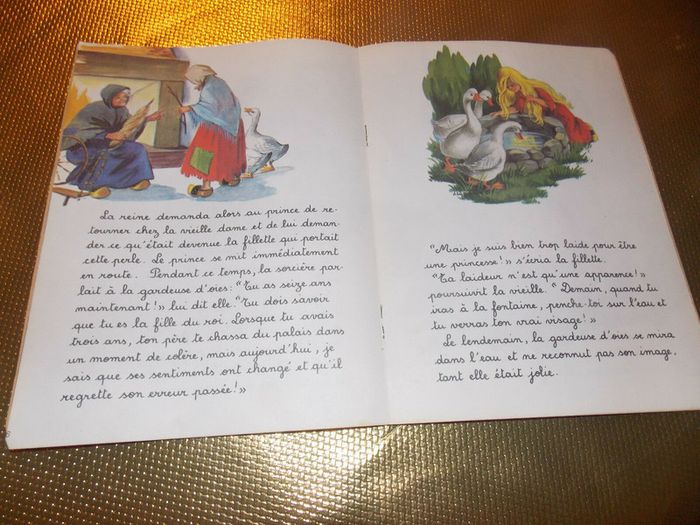 La reine demanda alors au prince de re-
tourner chez la vieille dame et de lui deman-
der ce qu'était devenue la fillette qui portait
cette perle. Le prince se mit immédiatement
en route. Pendant ce temps, la sorcière par-
lait à la gardeuse d'oies: "Tu as seize ans
maintenant!» lui dit elle. "Tu dois savoir
que tu es la fille du roi. Lorsque tu avais
trois ans, ton père te chassa du palais dans
un moment de colère, mais aujourd'hui, je
sais que ses sentiments ont changé et qu'il
regrette son erreur passée!»
"Mais je suis bien trop laide pour être
une princesse!» s'écria la fillette.
"Ta laideur n'est qu'une apparence!»
poursuivit la vieille. "Demain, quand tu
iras à la fontaine, penche-toi sur l'eau et
tu verras ton vrai visage!»
Le lendemain, la gardeuse d'oies se mira
dans l'eau et ne reconnut pas son image,
tant elle était jolie.